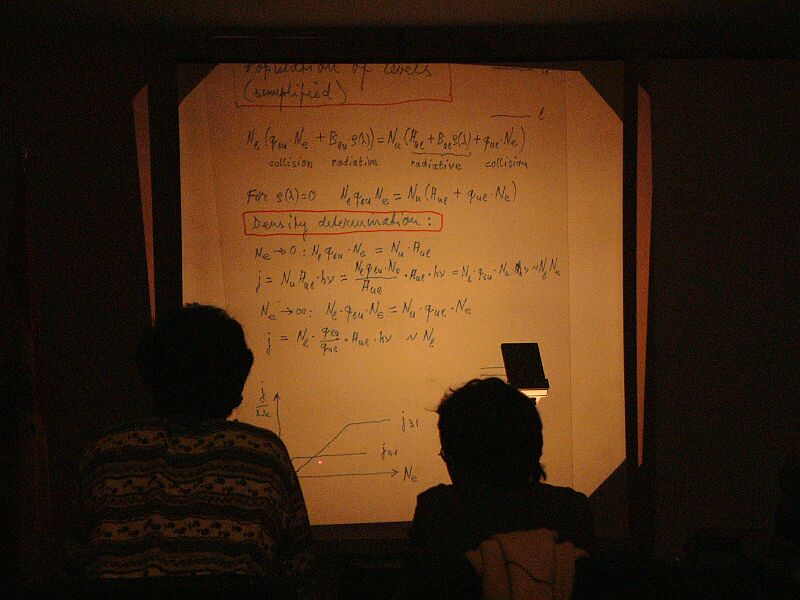 Population of levels
(simplified)
u
l
N_l (q_lu · N_e + B_lu · ρ(λ)) = N_u (A_ul + B_ul ρ(λ) + q_ul · N_e)
collision radiative radiative collision
For ρ(λ)=0 N_l q_lu N_e = N_u (A_ul + q_ul · N_e)
Density determination:
N_e → 0: N_l q_lu · N_e = N_u · A_ul
j = N_u A_ul · hν = N_l q_lu · N_e / A_ul · A_ul · hν = N_l · q_lu · N_e hν ~ N_l N_e
N_e → ∞: N_l · q_lu · N_e = N_u · q_ul · N_e
j = N_l · q_lu / q_ul · A_ul · hν ~ N_l
j / N_e
j_31
j_21
N_e